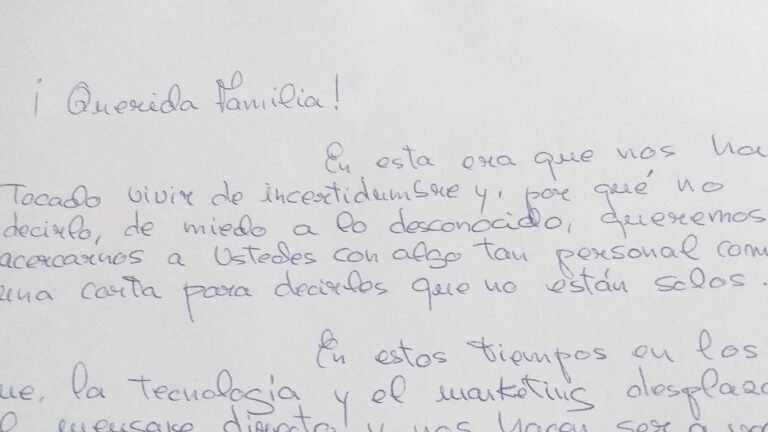 ¡Querida Familia!
En esta era que nos ha
Tocado vivir de incertidumbre y, por qué no
decirlo, de miedo a lo desconocido, queremos
acercarnos a Ustedes con algo tan personal com
una carta para decirles que no están solos.
En estos tiempos en los
ue, la tecnología y el marketing desplaza
mensaje directo y nos hacen ser a